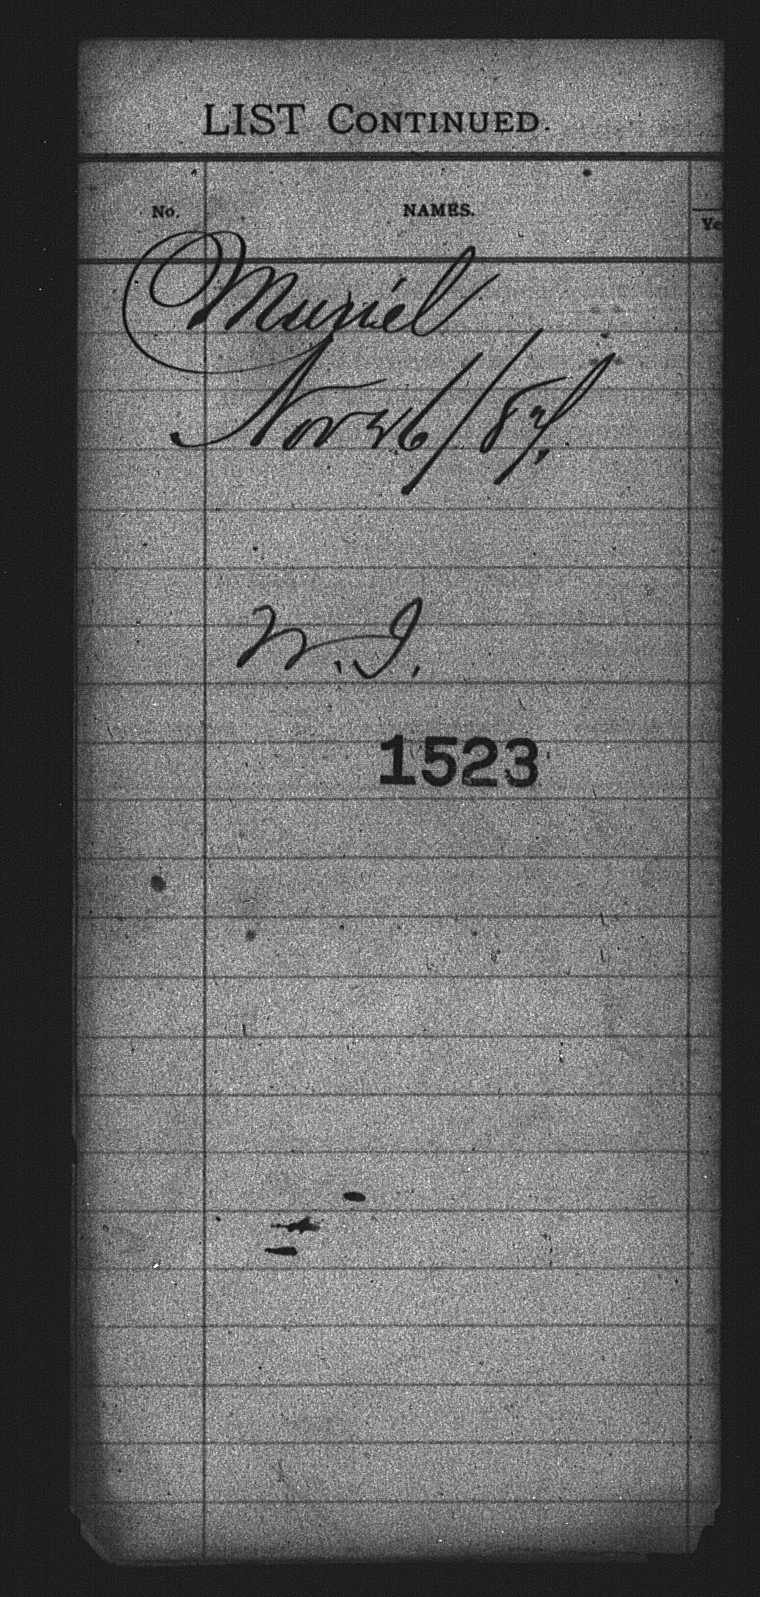 LIST CONTINUED.
No. NAMES. Ye
Muriel
Nov 26/87,
W.I.
1523